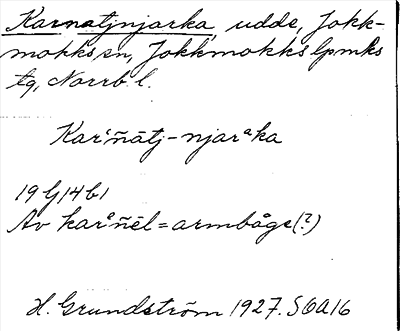 Karnatjnjarka, udde, Jokk-
mokks sn, Jokkmokks lpmks
tg, Norrb. l.
Karᵋñātj-njarᵃka
19 G/4 b1
Av karᵉñēl = armbåge (?)
H. Grundström 1927. SOA16